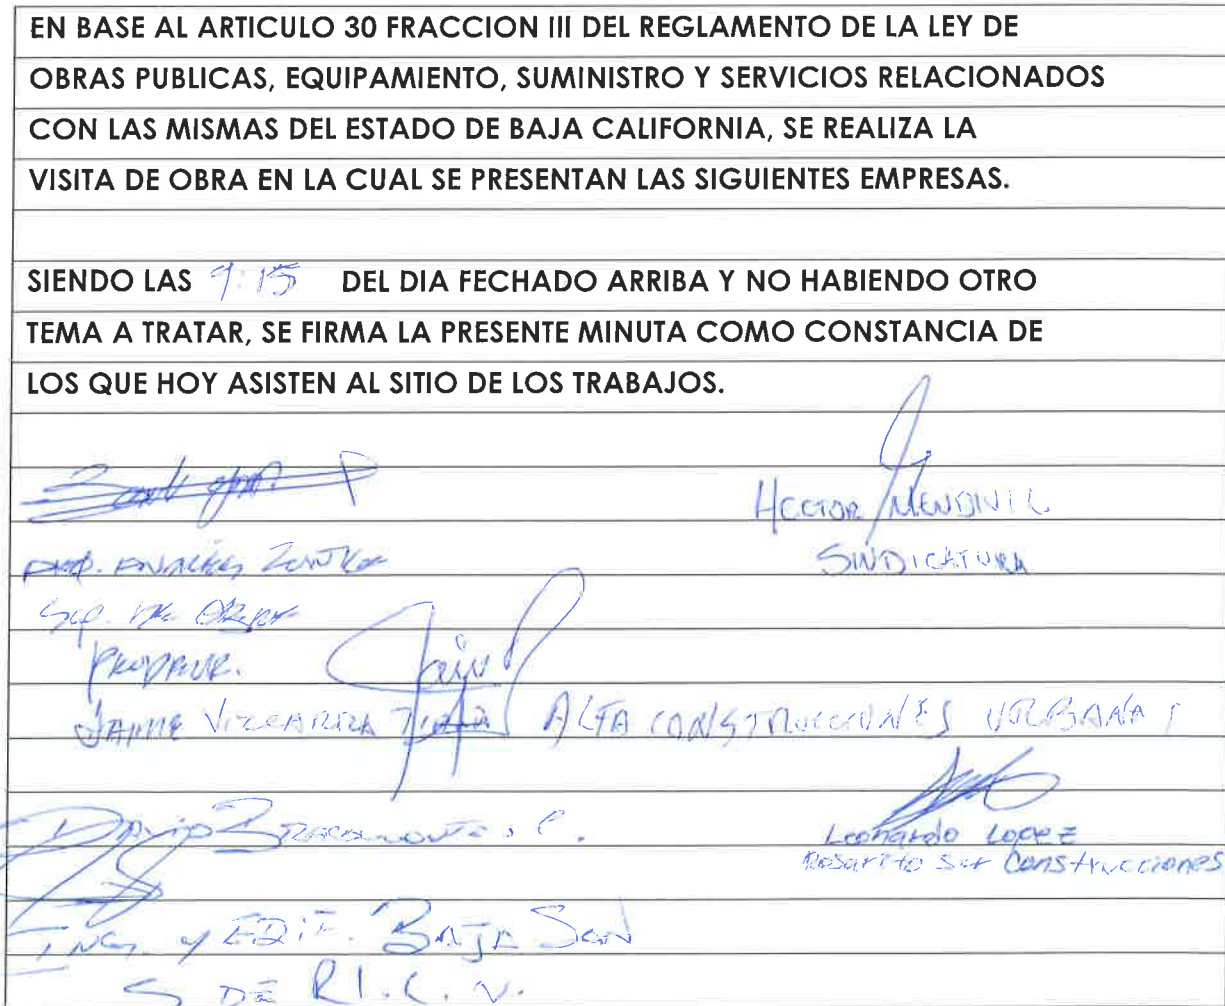 EN BASE AL ARTICULO 30 FRACCION III DEL REGLAMENTO DE LA LEY DE
OBRAS PUBLICAS, EQUIPAMIENTO, SUMINISTRO Y SERVICIOS RELACIONADOS
CON LAS MISMAS DEL ESTADO DE BAJA CALIFORNIA, SE REALIZA LA
VISITA DE OBRA EN LA CUAL SE PRESENTAN LAS SIGUIENTES EMPRESAS.
SIENDO LAS 9:15 DEL DIA FECHADO ARRIBA Y NO HABIENDO OTRO
TEMA A TRATAR, SE FIRMA LA PRESENTE MINUTA COMO CONSTANCIA DE
LOS QUE HOY ASISTEN AL SITIO DE LOS TRABAJOS.
HECTOR MENDIVIL
SINDICATURA
SUP. DE OBRA
PRODEUR.
JAIME ALTA CONSTRUCCIONES URBANAS
DAVID BRACAMONTES C.
Leonardo Lopez
Rosarito Sur Construcciones
ING. y EDIF. BAJA
S DE R.L.C.V.